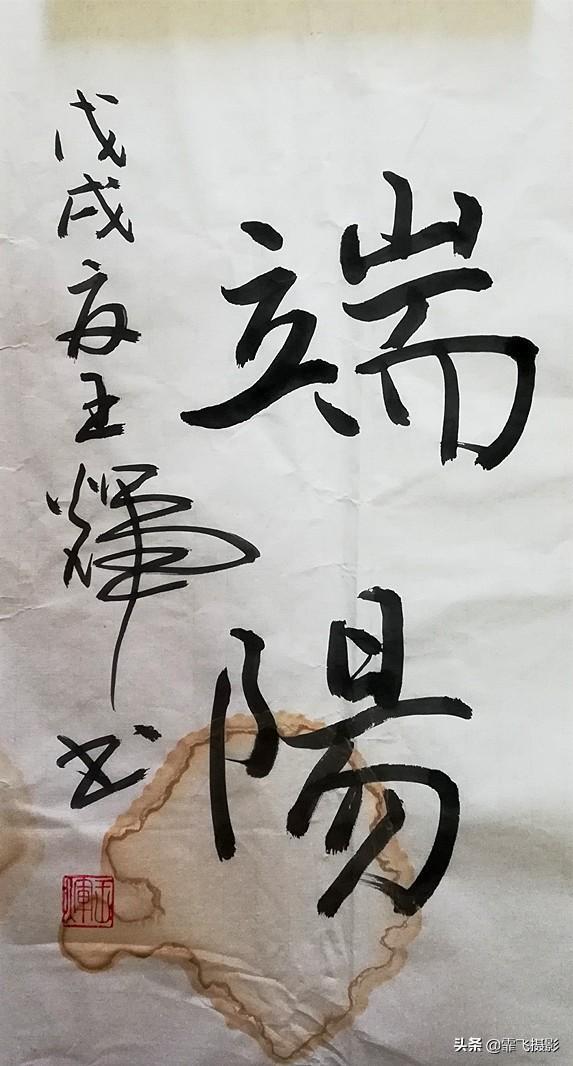 端陽
戊戌夏王煇书
王煇
头条 @霏飞摄影